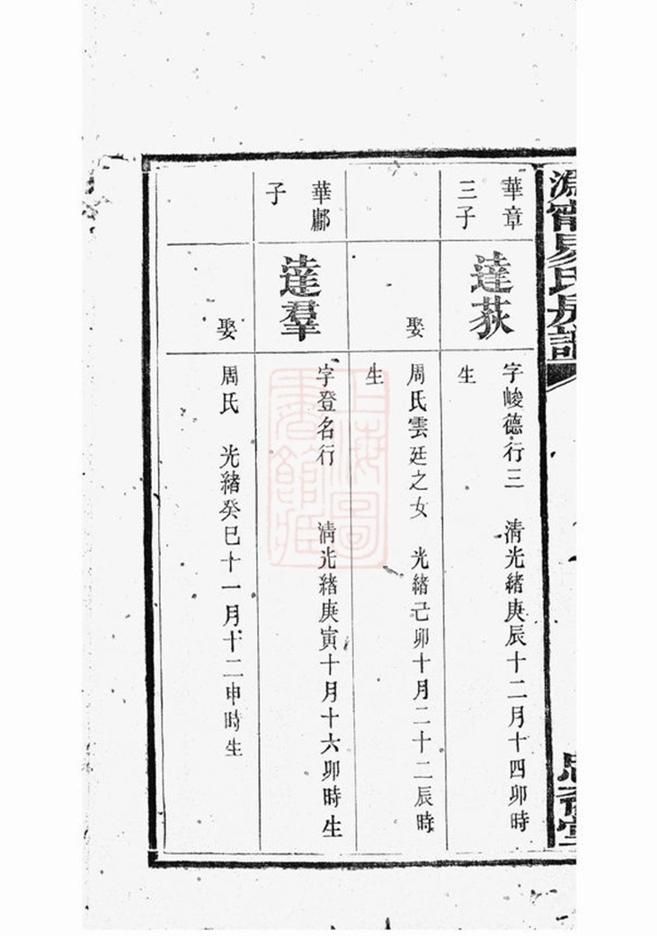 溈甯易氏房譜
華章
三子
達荻
字峻德行三 清光緒庚辰十二月十四卯時
生
娶
周氏雲廷之女 光緒己卯十月二十二辰時
生
華鄘
子
達羣
字登名行 清光緒庚寅十月十六卯時生
娶
周氏 光緒癸巳十一月十二申時生
上海圖
書館藏